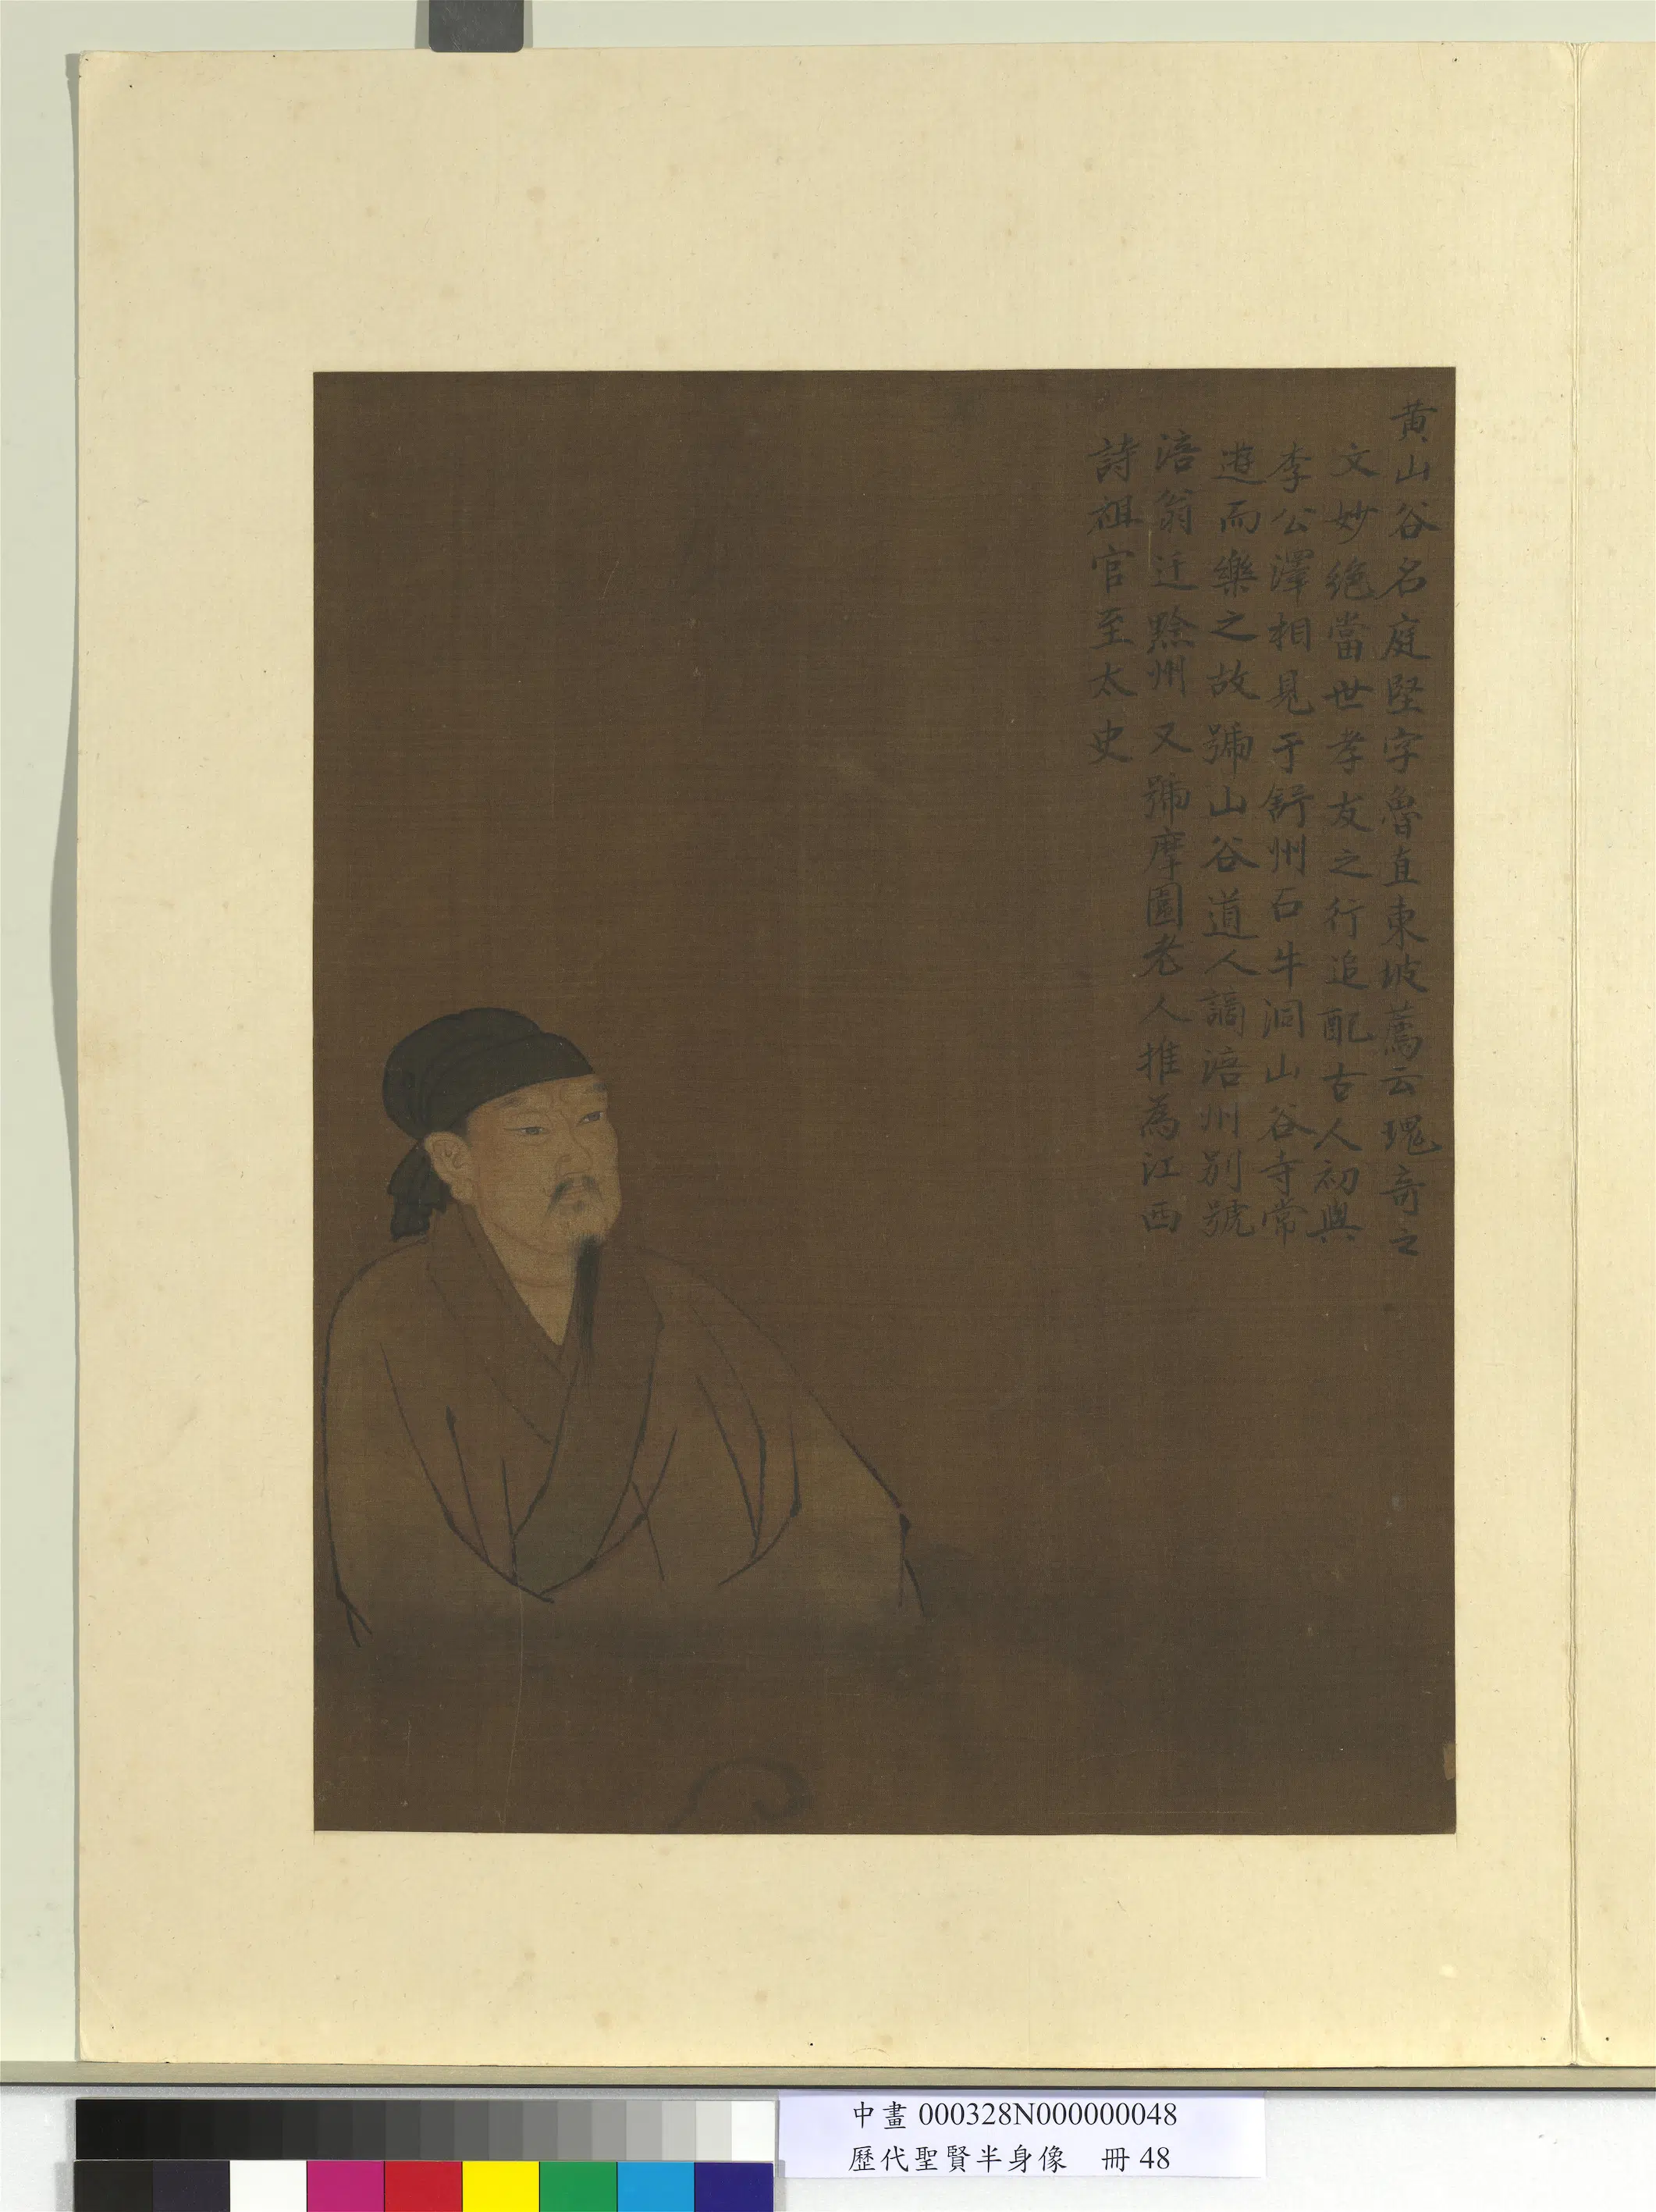 黄山谷名庭堅字魯直東坡薦云瑰奇之
文妙絶當世孝友之行追配古人初與
李公澤相見于舒州石牛洞山谷寺常
遊而樂之故號山谷道人謫涪州别號
涪翁迁黔州又號摩圍老人推為江西
詩祖官至太史
中畫 000328N000000048
歷代聖賢半身像 冊 48